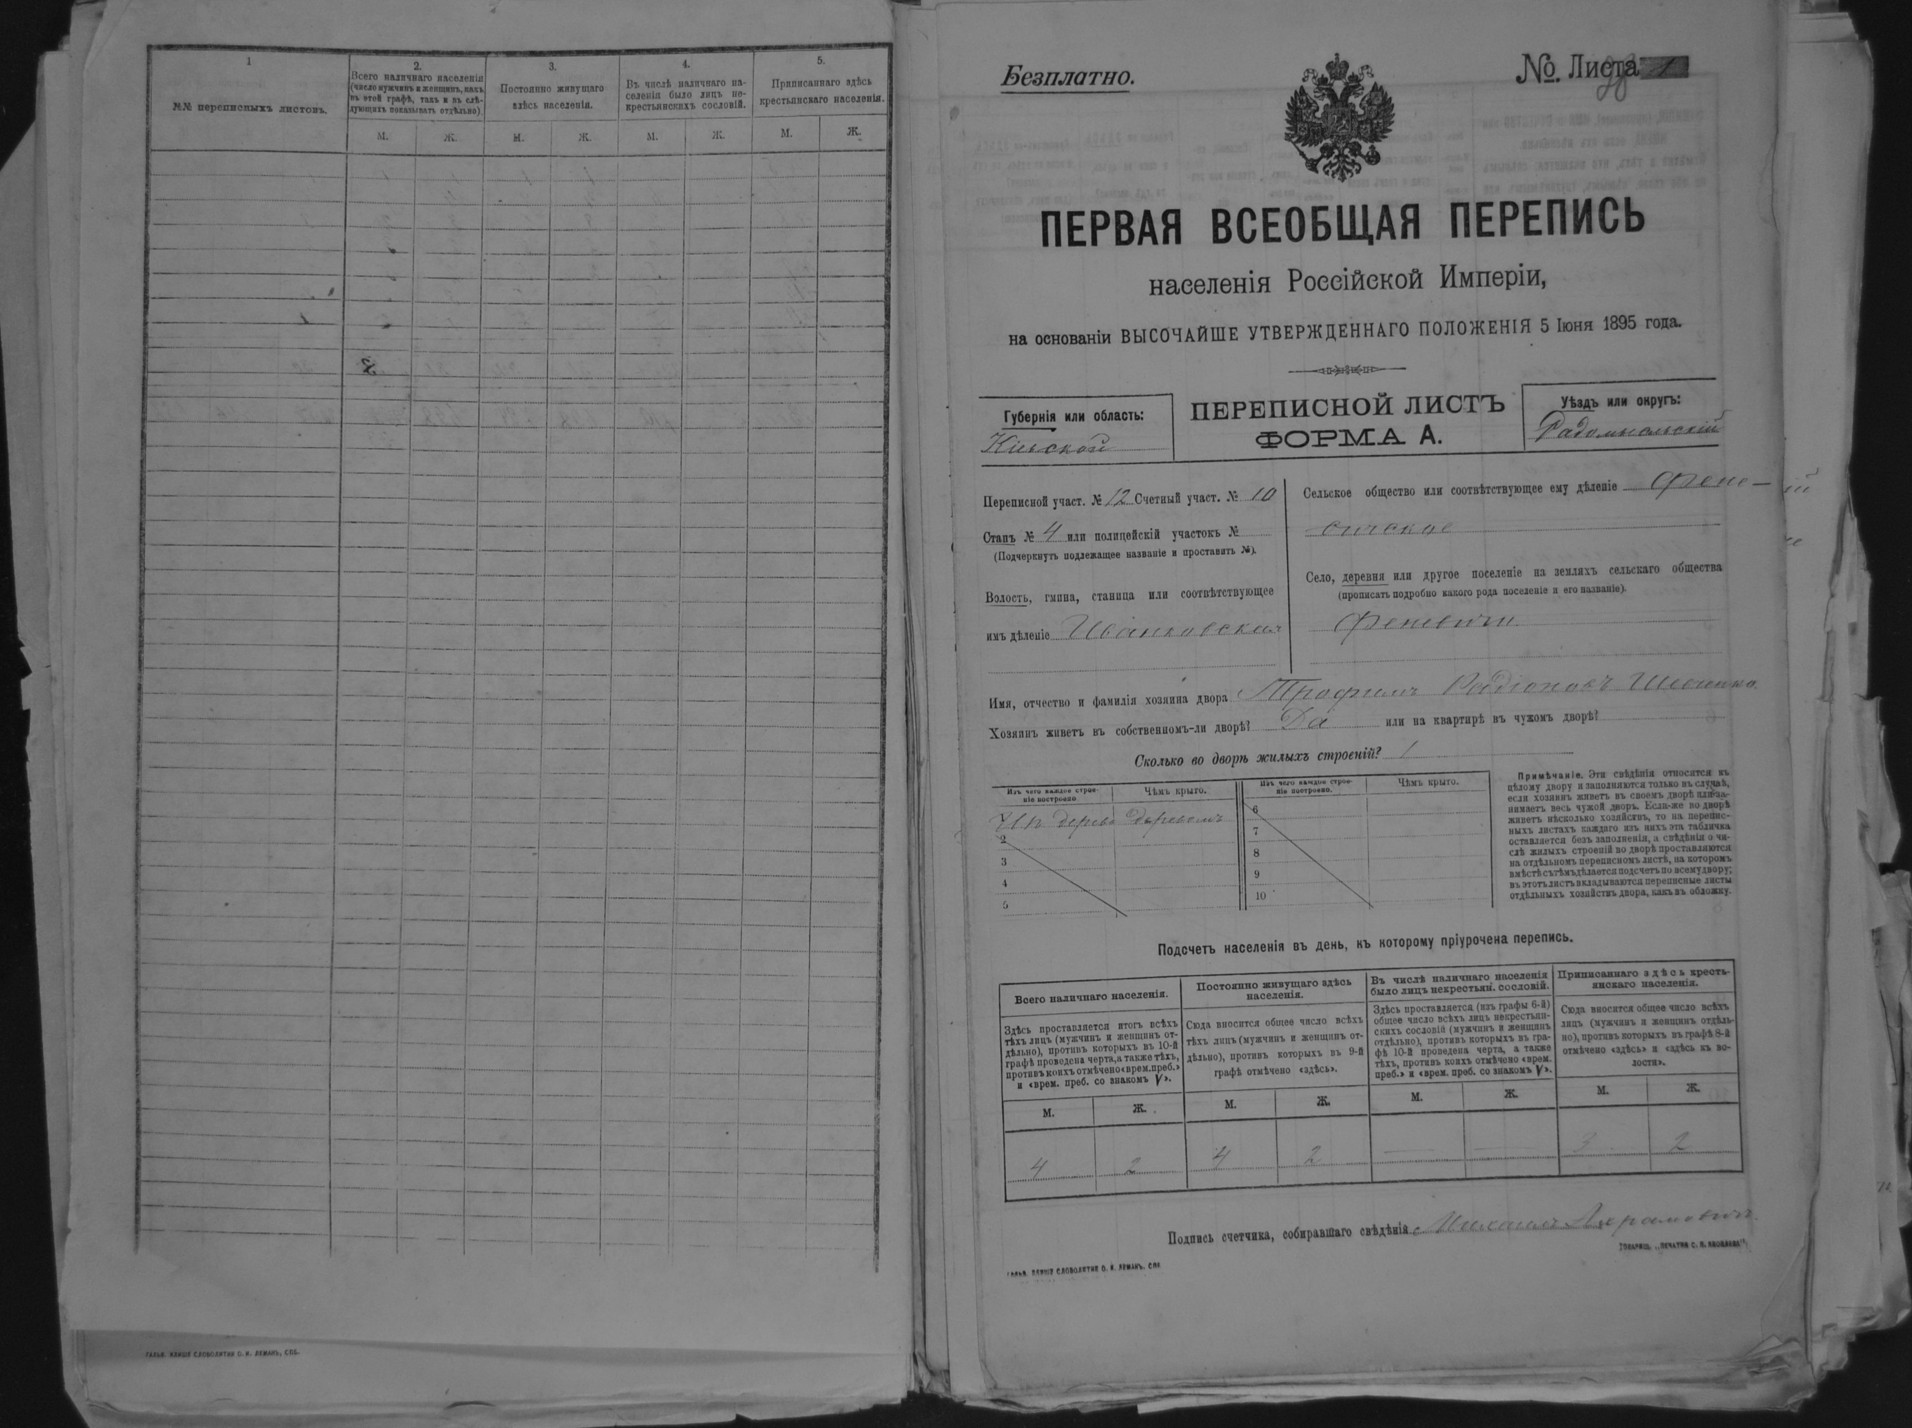 1
2.
3.
4.
5.
№№ переписныхъ листовъ.
Всего наличнаго населенія
(число мужчинъ и женщинъ, какъ
въ этой графѣ, такъ и въ слѣ-
дующихъ показывать отдѣльно)
Постоянно живущаго
здѣсь населенія.
Въ числѣ наличнаго на-
селенія было лицъ не-
крестьянскихъ сословій.
Приписаннаго здѣсь
крестьянскаго населенія.
М. Ж. М. Ж. М. Ж. М. Ж.
ГАЛЬВ. КЛИШЕ СЛОВОЛИТНИ О. И. ЛЕМАНЪ, СПБ.
Безплатно.
№ Листа 1
ПЕРВАЯ ВСЕОБЩАЯ ПЕРЕПИСЬ
населенія Россійской Имперіи,
на основаніи ВЫСОЧАЙШЕ УТВЕРЖДЕННАГО ПОЛОЖЕНІЯ 5 Іюня 1895 года.
Губернія или область:
Кіевской
ПЕРЕПИСНОЙ ЛИСТЪ
ФОРМА А.
Уѣздъ или округъ:
Радомысльскій
Переписной участ. № 12 Счетный участ. № 10
Станъ № 4 или полицейскій участокъ №
(Подчеркнуть подлежащее названіе и проставить №).
Волость, гмина, станица или соотвѣтствующее
имъ дѣленіе Иванковская
Сельское общество или соотвѣтствующее ему дѣленіе Фене-
вичское
Село, деревня или другое поселеніе на земляхъ сельскаго общества
(прописать подробно какого рода поселеніе и его названіе).
Феневичи
Имя, отчество и фамилія хозяина двора Трофимъ Родіоновъ
Хозяинъ живетъ въ собственномъ-ли дворѣ? Да или на квартирѣ въ чужомъ дворѣ?
Сколько во дворѣ жилыхъ строеній? 1
Изъ чего каждое строе-
ніе построено.
Чѣмъ крыто.
Изъ чего каждое строе-
ніе построено.
Чѣмъ крыто.
Изъ дерева Деревомъ
2
3
4
5
6
7
8
9
10
Примѣчаніе. Эти свѣдѣнія относятся къ
цѣлому двору и заполняются только въ случаѣ,
если хозяинъ живетъ въ своемъ дворѣ или за-
нимаетъ весь чужой дворъ. Если-же во дворѣ
живетъ нѣсколько хозяйствъ, то на перепис-
ныхъ листахъ каждаго изъ нихъ эта табличка
оставляется безъ заполненія, а свѣдѣнія о чи-
слѣ жилыхъ строеній во дворѣ проставляются
на отдѣльномъ переписномъ листѣ, на которомъ
вмѣстѣ съ тѣмъ дѣлается подсчетъ по всему двору;
въ этотъ листъ вкладываются переписные листы
отдѣльныхъ хозяйствъ двора, какъ въ обложку.
Подсчетъ населенія въ день, къ которому пріурочена перепись.
Всего наличнаго населенія.
Постоянно живущаго здѣсь
населенія.
Въ числѣ наличнаго населенія
было лицъ некрестьян. сословій.
Приписаннаго здѣсь кресть-
янскаго населенія.
Здѣсь проставляется итогъ всѣхъ
тѣхъ лицъ (мужчинъ и женщинъ от-
дѣльно), противъ которыхъ въ 10-й
графѣ проведена черта, а также тѣхъ,
противъ коихъ отмѣчено «врем. преб.»
и «врем. преб. со знакомъ V».
Сюда вносится общее число всѣхъ
тѣхъ лицъ (мужчинъ и женщинъ от-
дѣльно), противъ которыхъ въ 9-й
графѣ отмѣчено «здѣсь».
Здѣсь проставляется (изъ графы 6-й)
общее число всѣхъ лицъ некрестьян-
скихъ сословій (мужчинъ и женщинъ
отдѣльно), противъ которыхъ въ гра-
фѣ 10-й проведена черта, а также
тѣхъ, противъ коихъ отмѣчено «врем.
преб.» и «врем. преб. со знакомъ V».
Сюда вносится общее число всѣхъ
лицъ (мужчинъ и женщинъ отдѣль-
но), противъ которыхъ въ графѣ 8-й
отмѣчено «здѣсь» и «здѣсь къ во-
лости».
М. Ж. М. Ж. М. Ж. М. Ж.
4 2 4 2 — — 3 2
Подпись счетчика, собиравшаго свѣдѣнія Михаилъ
ГАЛЬВ. КЛИШЕ СЛОВОЛИТНИ О. И. ЛЕМАНЪ, СПБ.
ТОВАРИЩ. „ПЕЧАТНЯ С. П. ЯКОВЛЕВА“.